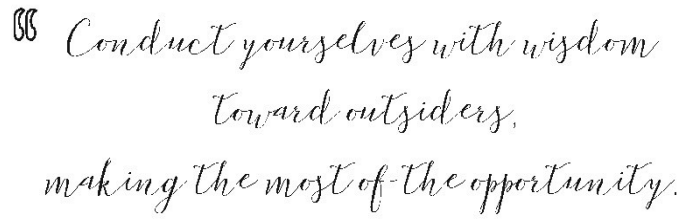 “ Conduct yourselves with wisdom
toward outsiders,
making the most of the opportunity.